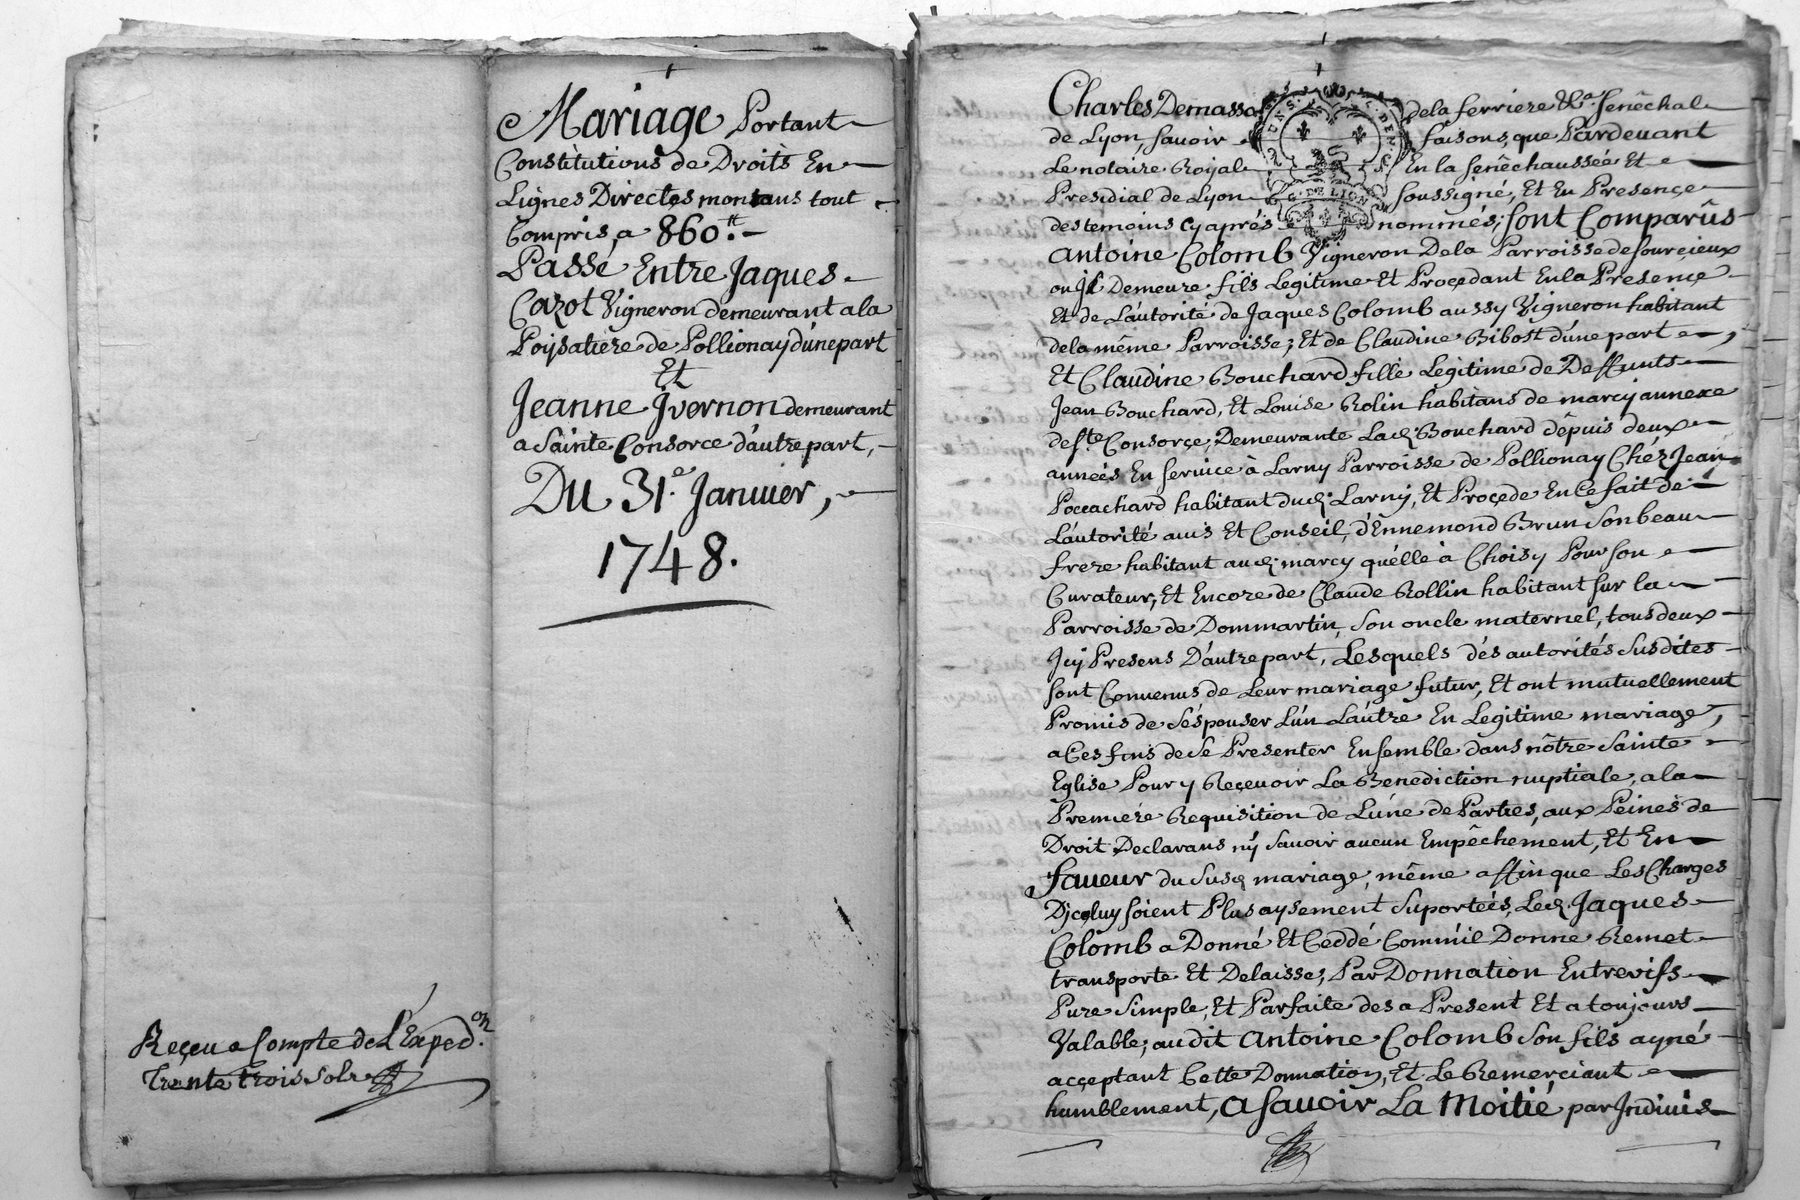 Mariage Portant
Constitutions de Droits En
Lignes Directes montans tout
Compris, a 860.#
Passé Entre Jaques
Cazot Vigneron demeurant a la
Poysatiere de Pollionay d'une part
Et
Jeanne Jvernon demeurant
a Sainte Consorce d'autre part,
Du 31.e Janvier,
1748.
Reçeu a Compte de l'Exped.on
Trente trois sols
Charles Demasso de la ferriere &a. Senêchal
de Lyon, savoir faisons, que Pardevant
Le notaire Royal En la senêchaussée Et
Presidial de Lyon soussigné, Et En Presençe
des temoins cy aprés nommés; sont Comparûs
DE LION
Antoine Colomb Vigneron De la Parroisse de sourcieux
ou Jl Demeure fils Legitime Et Proçedant En la Presençe
Et de L'autorité de Jaques Colomb aussy Vigneron habitant
de la même Parroisse; Et de Claudine Bibost d'une part,
Et Claudine Bouchard fille Legitime de Deffunts
Jean Bouchard, Et Louise Rolin habitans de marcy annexe
de ste. Consorçe, Demeurante Lad. Bouchard dépuis deux
années En service à Larny Parroisse de Pollionay Chéz Jean
Poccachard habitant dud. Larny, Et Proçede En Ce fait de
L'autorité avis Et Conseil, d'Ennemond Brun son beau
frere habitant aud. marcy qu'elle à Choisy Pour son
Curateur, Et Encore de Claude Rollin habitant sur la
Parroisse de Dommartin, son oncle maternel, tous deux
Jcy Presens D'autre part, Lesquels dés autorités susdites
sont Convenus de Leur mariage futur, Et ont mutuellement
Promis de s'éspouser L'un L'autre En Legitime mariage,
a Ces fins de se Presenter Ensemble dans nôtre Sainte
Eglise Pour y Reçevoir La Benediction nuptiale, a la
Premiére Requisition de L'une de Parties, aux Peines de
Droit Declarans n'y savoir aucun Empêchement, Et En
faveur du susd. mariage, même affin que Les Charges
Djceluy soient Plus aysement suportées, Led. Jaques
Colomb a Donné Et Ceddé Comm'il Donne Remet
transporte Et Delaisse, Par Donnation Entrevifs
Pure simple, Et Parfaite des a Present Et a toujours
Valable; audit Antoine Colomb son fils ayné
acçeptant Cette Donnation, Et Le Remerciant
humblement, a savoir La Moitié par Jndivis